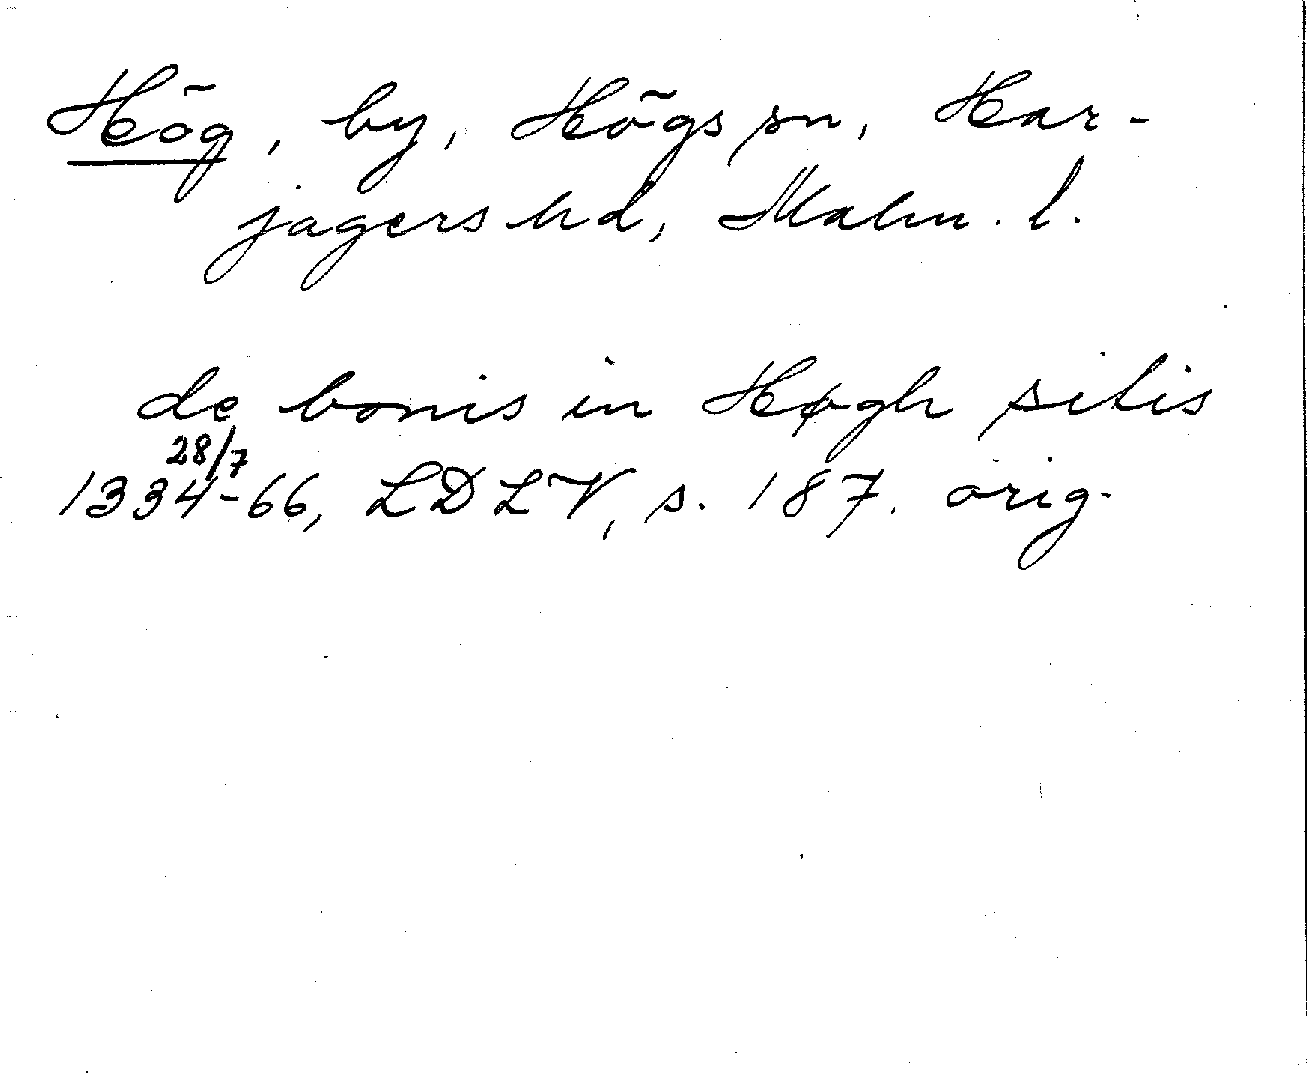 Hög, by, Högs sn, Har-
jagers hd, Malm. l.
de bonis in Høgh sitis
1334 28/7 -66, LDLV, s. 187. orig.